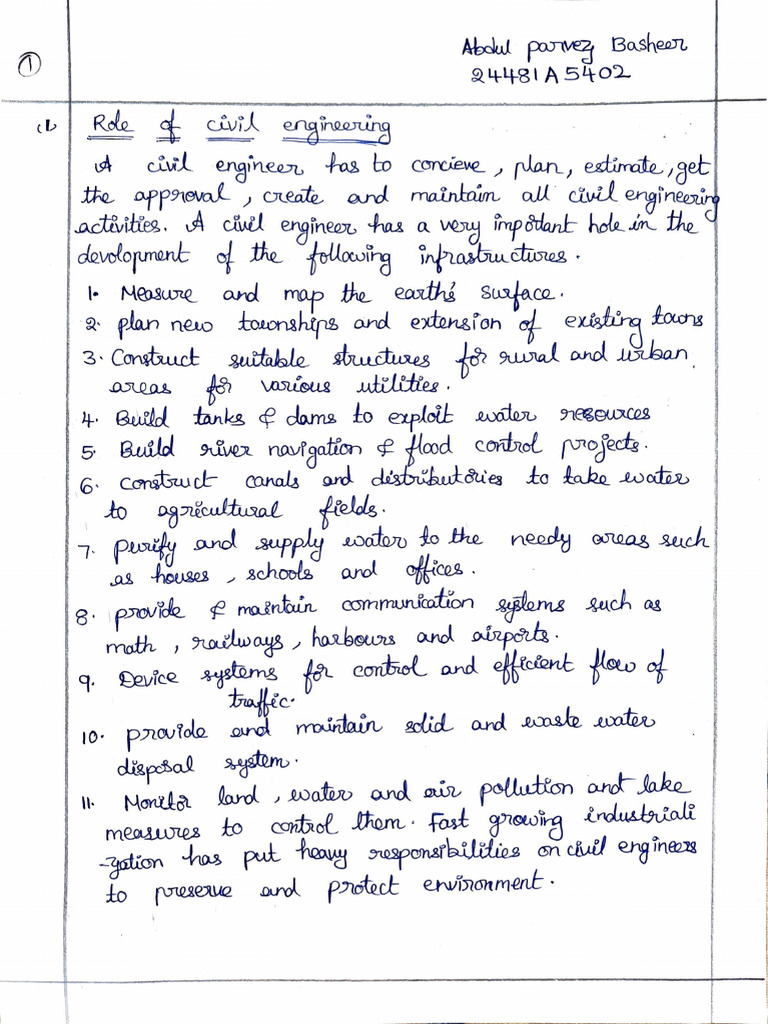 Abdul parvez Basheer
1
24481A5402
(1. Role of civil engineering
A civil engineer has to concieve, plan, estimate, get
the approval, create and maintain all civil engineering
activities. A civil engineer has a very important hole in the
devolopment of the following infrastructures.
1. Measure and map the earth's surface.
2. plan new townships and extension of existing towns
3. Construct suitable structures for rural and urban
areas for various utilities.
4. Build tanks & dams to exploit water resources
5. Build river navigation & flood control projects.
6. construct canals and distributories to take water
to agricultural fields.
7. purify and supply water to the needy areas such
as houses, schools and offices.
8. provide & maintain communication systems such as
math, railways, harbours and airports.
9. Device systems for control and efficient flow of
traffic.
10. provide and maintain solid and waste water
disposal system.
11. Monitor land, water and air pollution and take
measures to control them. Fast growing industriali
-zation has put heavy responsibilities on civil engineers
to preserve and protect environment.